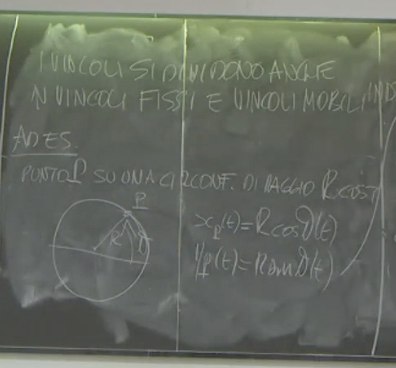 I VINCOLI SI DIVIDONO ANCHE
IN VINCOLI FISSI E VINCOLI MOBILI
AD ES.
PUNTO P SU UNA CIRCONF. DI RAGGIO R COST
P
R
x_P(t)=R cos ϑ(t)
y_P(t)=R sin ϑ(t)